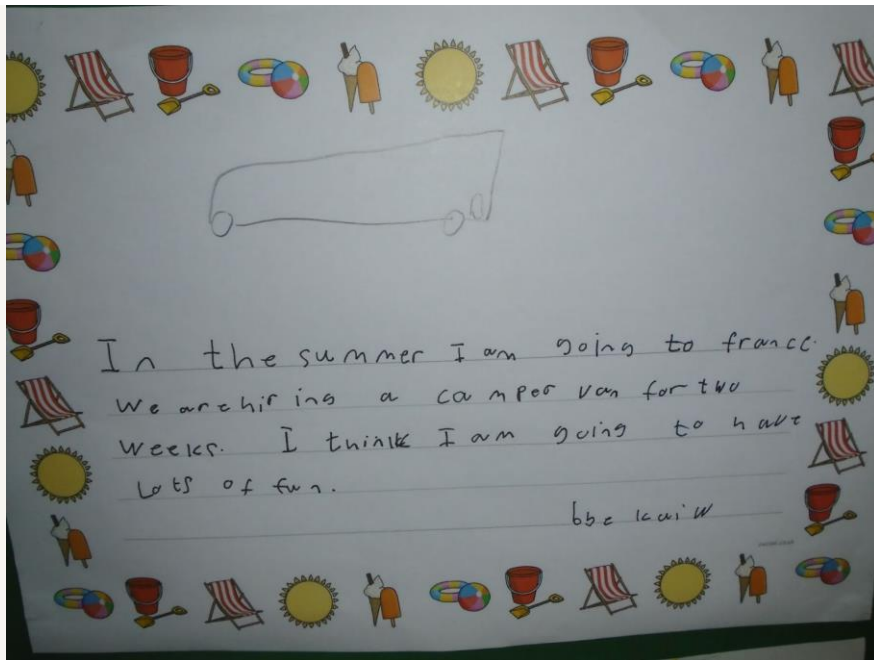 In the summer I am going to france.
We are hiring a camper van for two
weeks. I think I am going to have
Lots of fun.